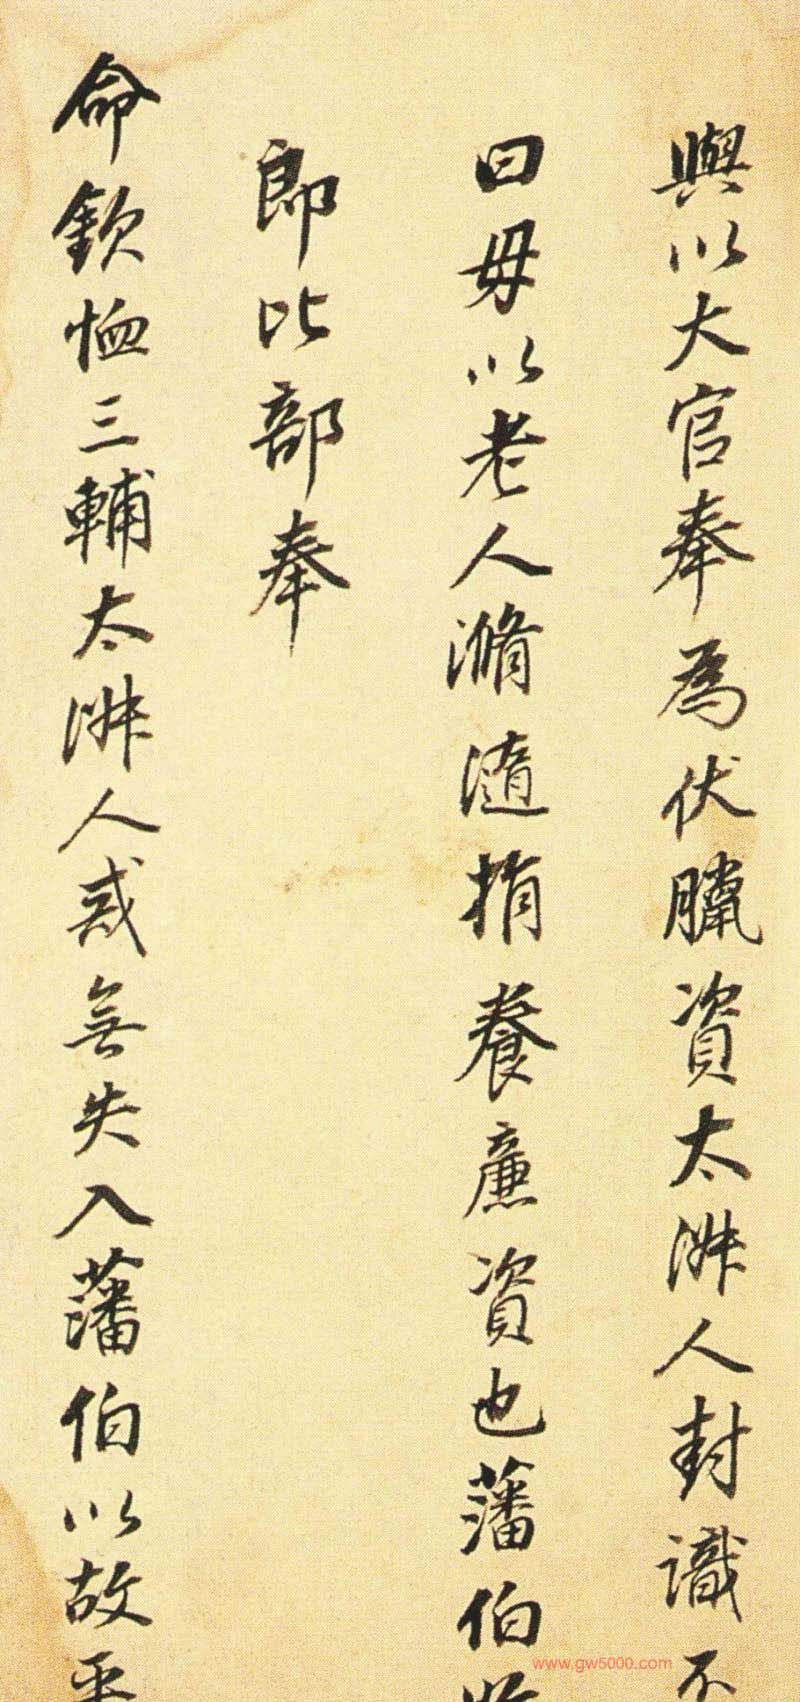 輿以大官奉為伏臘資太淑人封識不
曰毋以老人滫瀡捐養廉資也藩伯
郎比部奉
命欽恤三輔太淑人戒無失入藩伯以故平
www.gw5000.com